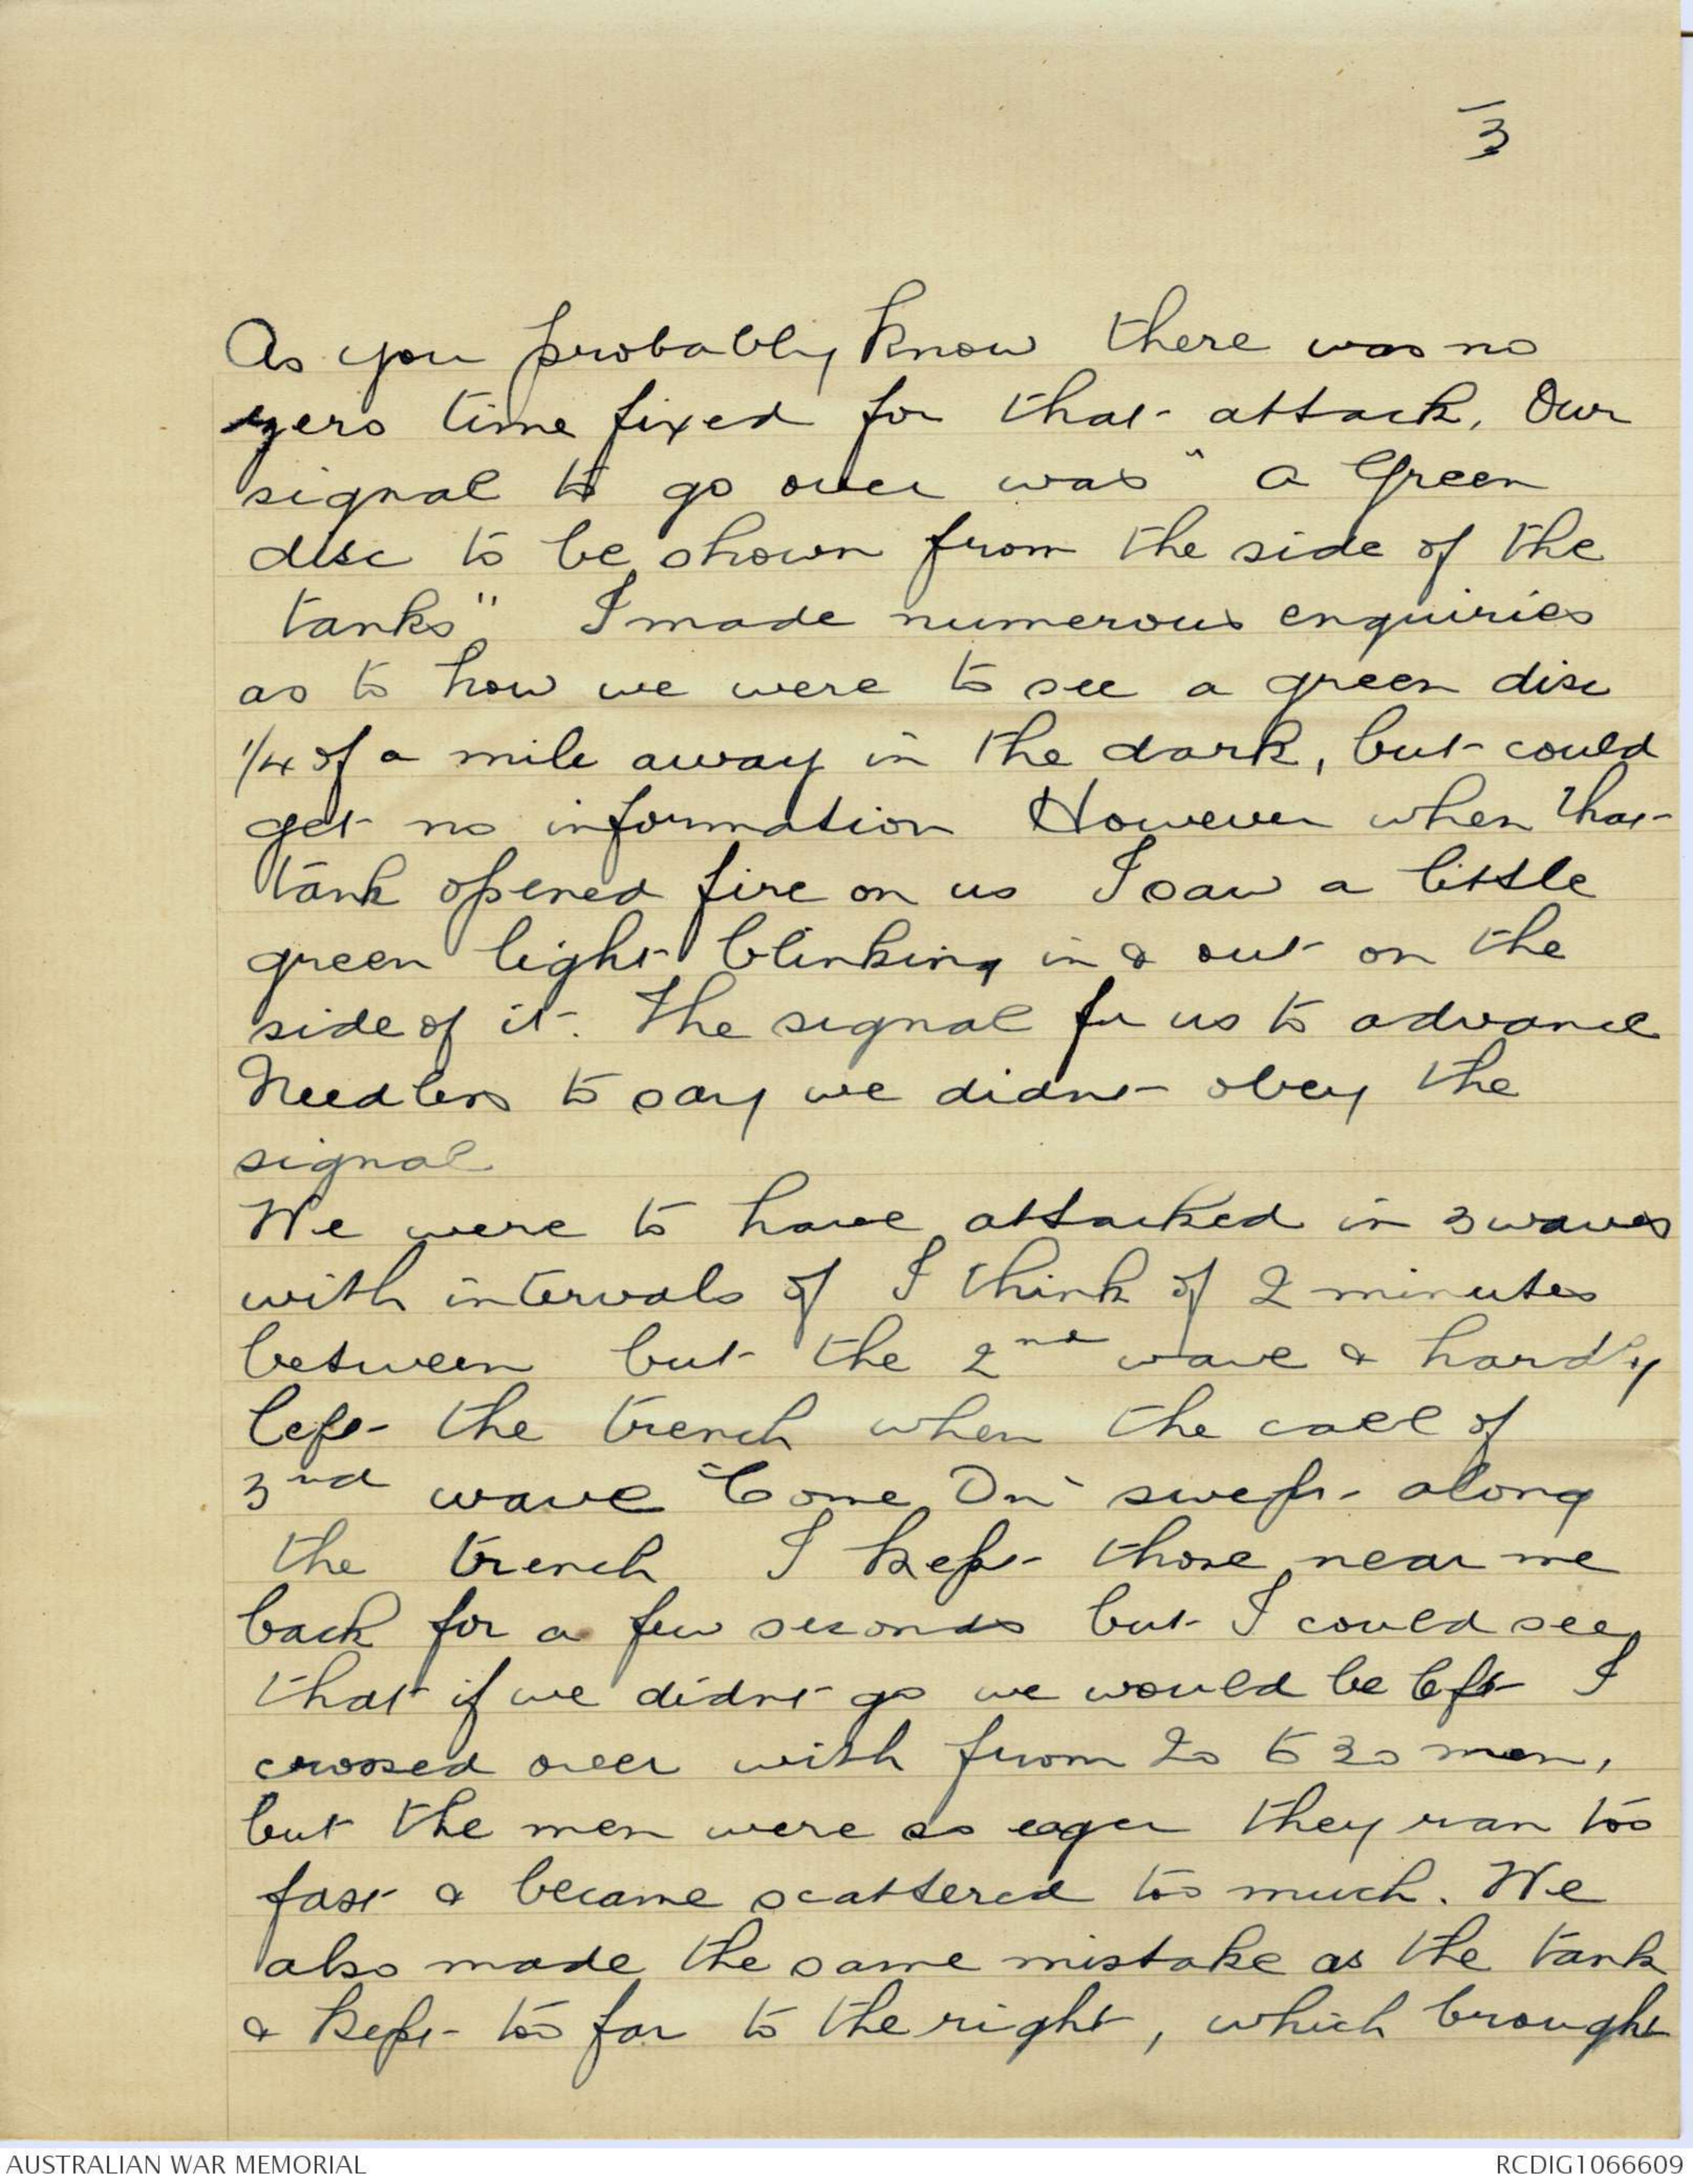 3
As you probably know there was no
zero time fixed for that attack. Our
signal to go over was "a Green
disc to be shown from the side of the
tanks" I made numerous enquiries
as to how we were to see a green disc
1/4 of a mile away in the dark, but could
get no information However when that
tank opened fire on us I saw a little
green light blinking in & out on the
side of it. The signal for us to advance
Needless to say we didnt obey the
signal
We were to have attacked in 3 waves
with intervals of I think of 2 minutes
between but the 2nd wave & hardly
left the trench when the call of
3rd wave "Come On" swept along
the trench I kept those near me
back for a few seconds but I could see
that if we didnt go we would be left I
crossed over with from 20 to 30 men,
but the men were so eager they ran too
fast & became scattered too much. We
also made the same mistake as the tank
& kept too far to the right, which brought
AUSTRALIAN WAR MEMORIAL
RCDIG1066609